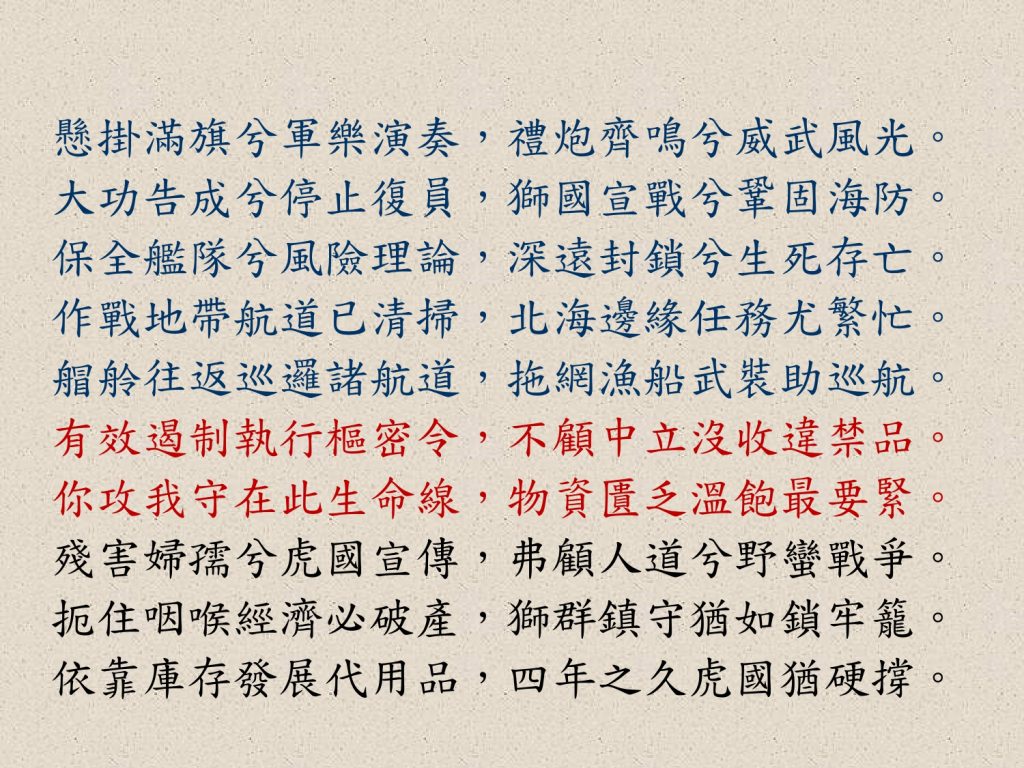 懸掛滿旗兮軍樂演奏，禮炮齊鳴兮威武風光。
大功告成兮停止復員，獅國宣戰兮鞏固海防。
保全艦隊兮風險理論，深遠封鎖兮生死存亡。
作戰地帶航道已清掃，北海邊緣任務尤繁忙。
艒舲往返巡邏諸航道，拖網漁船武裝助巡航。
有效遏制執行樞密令，不顧中立沒收違禁品。
你攻我守在此生命線，物資匱乏溫飽最要緊。
殘害婦孺兮虎國宣傳，弗顧人道兮野蠻戰爭。
扼住咽喉經濟必破產，獅群鎮守猶如鎖牢籠。
依靠庫存發展代用品，四年之久虎國猶硬撐。